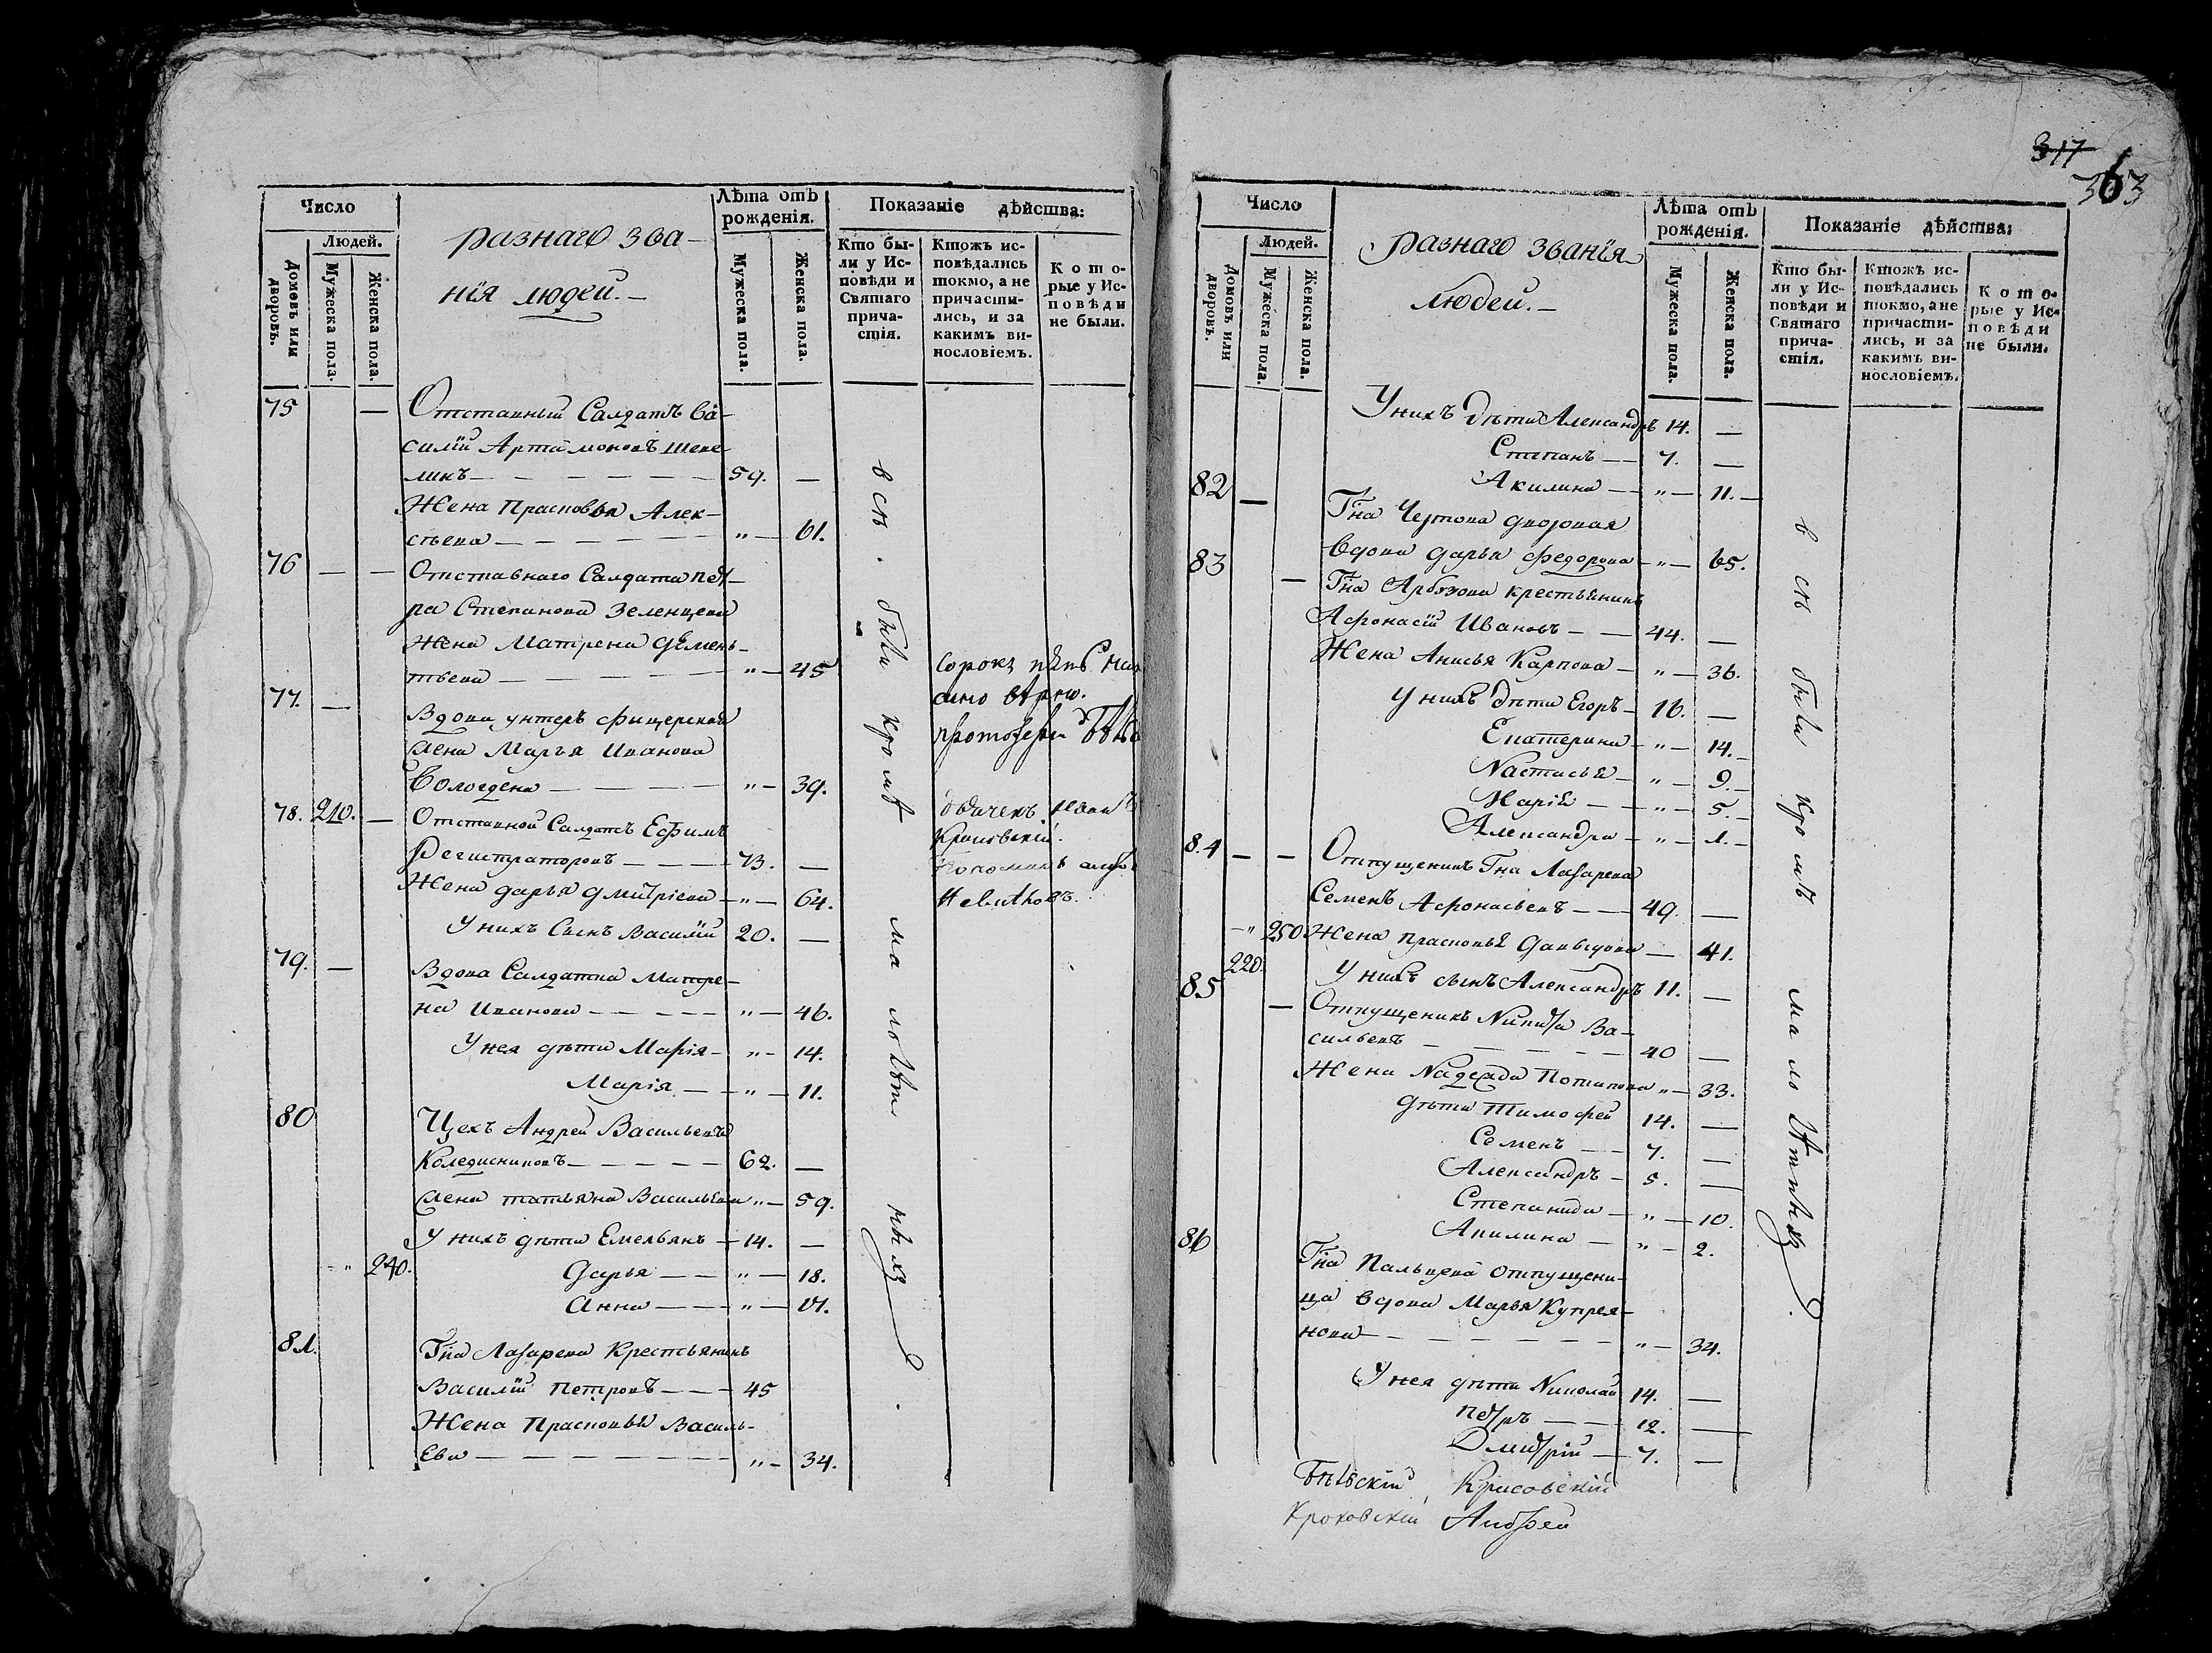 317
363
Число
Людей.
Домовъ или дворовъ.
Мужеска пола.
Женска пола.
разнаго зва-
нія людей.-
Лѣта отъ рожденія.
Мужеска пола.
Женска пола.
Показаніе дѣйства:
Кто бы-
ли у Ис-
повѣди и
Святаго
прича-
стія.
Ктожъ ис-
повѣдались
токмо, а не
причасти-
лись, и за
какимъ ви-
нословіемъ.
Кото-
рые у Ис-
повѣди
не были.
75 — Отставный Салдатъ Ва-
силій Артамоновъ Шепе
линъ — 59. —
Жена Прасковья Алек-
сѣева — " — 61.
76 — — Отставнаго Салдата Пет-
ра Степанова Зеленцева
Жена Матрена Демень-
тьева — " — 45
77. — Вдова унтеръ Офицерская
жена Марья Иванова
Вологдена — " — 39.
78. 210. — Отставной Салдатъ Ефимъ
Регистраторовъ — 73. —
Жена дарья дмитріева — " — 64.
У нихъ Сынъ Василій 20. —
79. — Вдова Салдатка Матре-
на Иванова — " — 46.
У нея дѣти Марія — " — 14.
Марія — " — 11.
80 Цехъ Андрей Васильевъ
— 62. —
жена татьяна Васильева " — 59.
У нихъ дѣти Емельянъ — 14. —
" 240. Дарья — " — 18.
Анна — " —
81. Гна Лазарева Крестьянинъ
Василій Петровъ — 45
Жена Прасковья Василь-
Ева — " — 34.
всѣ были кромѣ малолѣтнихъ.
Сорокъ пять
протоіерей
дьячекъ Иванъ
Число
Людей.
Домовъ или дворовъ.
Мужеска пола.
Женска пола.
разнаго званія
людей.-
Лѣта отъ рожденія.
Мужеска пола.
Женска пола.
Показаніе дѣйства:
Кто бы-
ли у Ис-
повѣди и
Святаго
прича-
стія.
Ктожъ ис-
повѣдались
токмо, а не
причасти-
лись, и за
какимъ ви-
нословіемъ.
Кото-
рые у Ис-
повѣди
не были.
У нихъ дѣти Александръ 14. —
Степанъ — 7. —
Акилина — " — 11. —
82 — Гна Чертова дворовая
вдова дарья федорова — " — 65.
83 — Гна Арбузова крестьянинъ
Афонасій Ивановъ — 44. —
Жена Анисья Карпова — " — 36.
У нихъ дѣти Егоръ — 16. —
Екатерина — " — 14. —
Настасья — " — 9. —
Марія — " — 5. —
Александра — " — 1. —
84 — — Отпущеникъ Гна Лазарева
Семенъ Афонасьевъ — 49. —
" 250 Жена Прасковья Давыдова — 41.
220. У нихъ сынъ Александръ 11. —
85 — Отпущеникъ Никита Ва-
сильевъ — 40 —
Жена Надежда Потапова " — 33.
Дѣти Тимофей 14. —
Семенъ — 7. —
Александръ — 5. —
Степанида — " — 10.
Акилина — " — 2.
86 Гна Пальцева Отпущени-
ца вдова Марья Купрея-
нова — " — 34.
У нея дѣти Николай 14. —
Петръ — 12. —
Дмитрій — 7. —
всѣ были кромѣ малолѣтнихъ.
Бѣльскій
Андрей